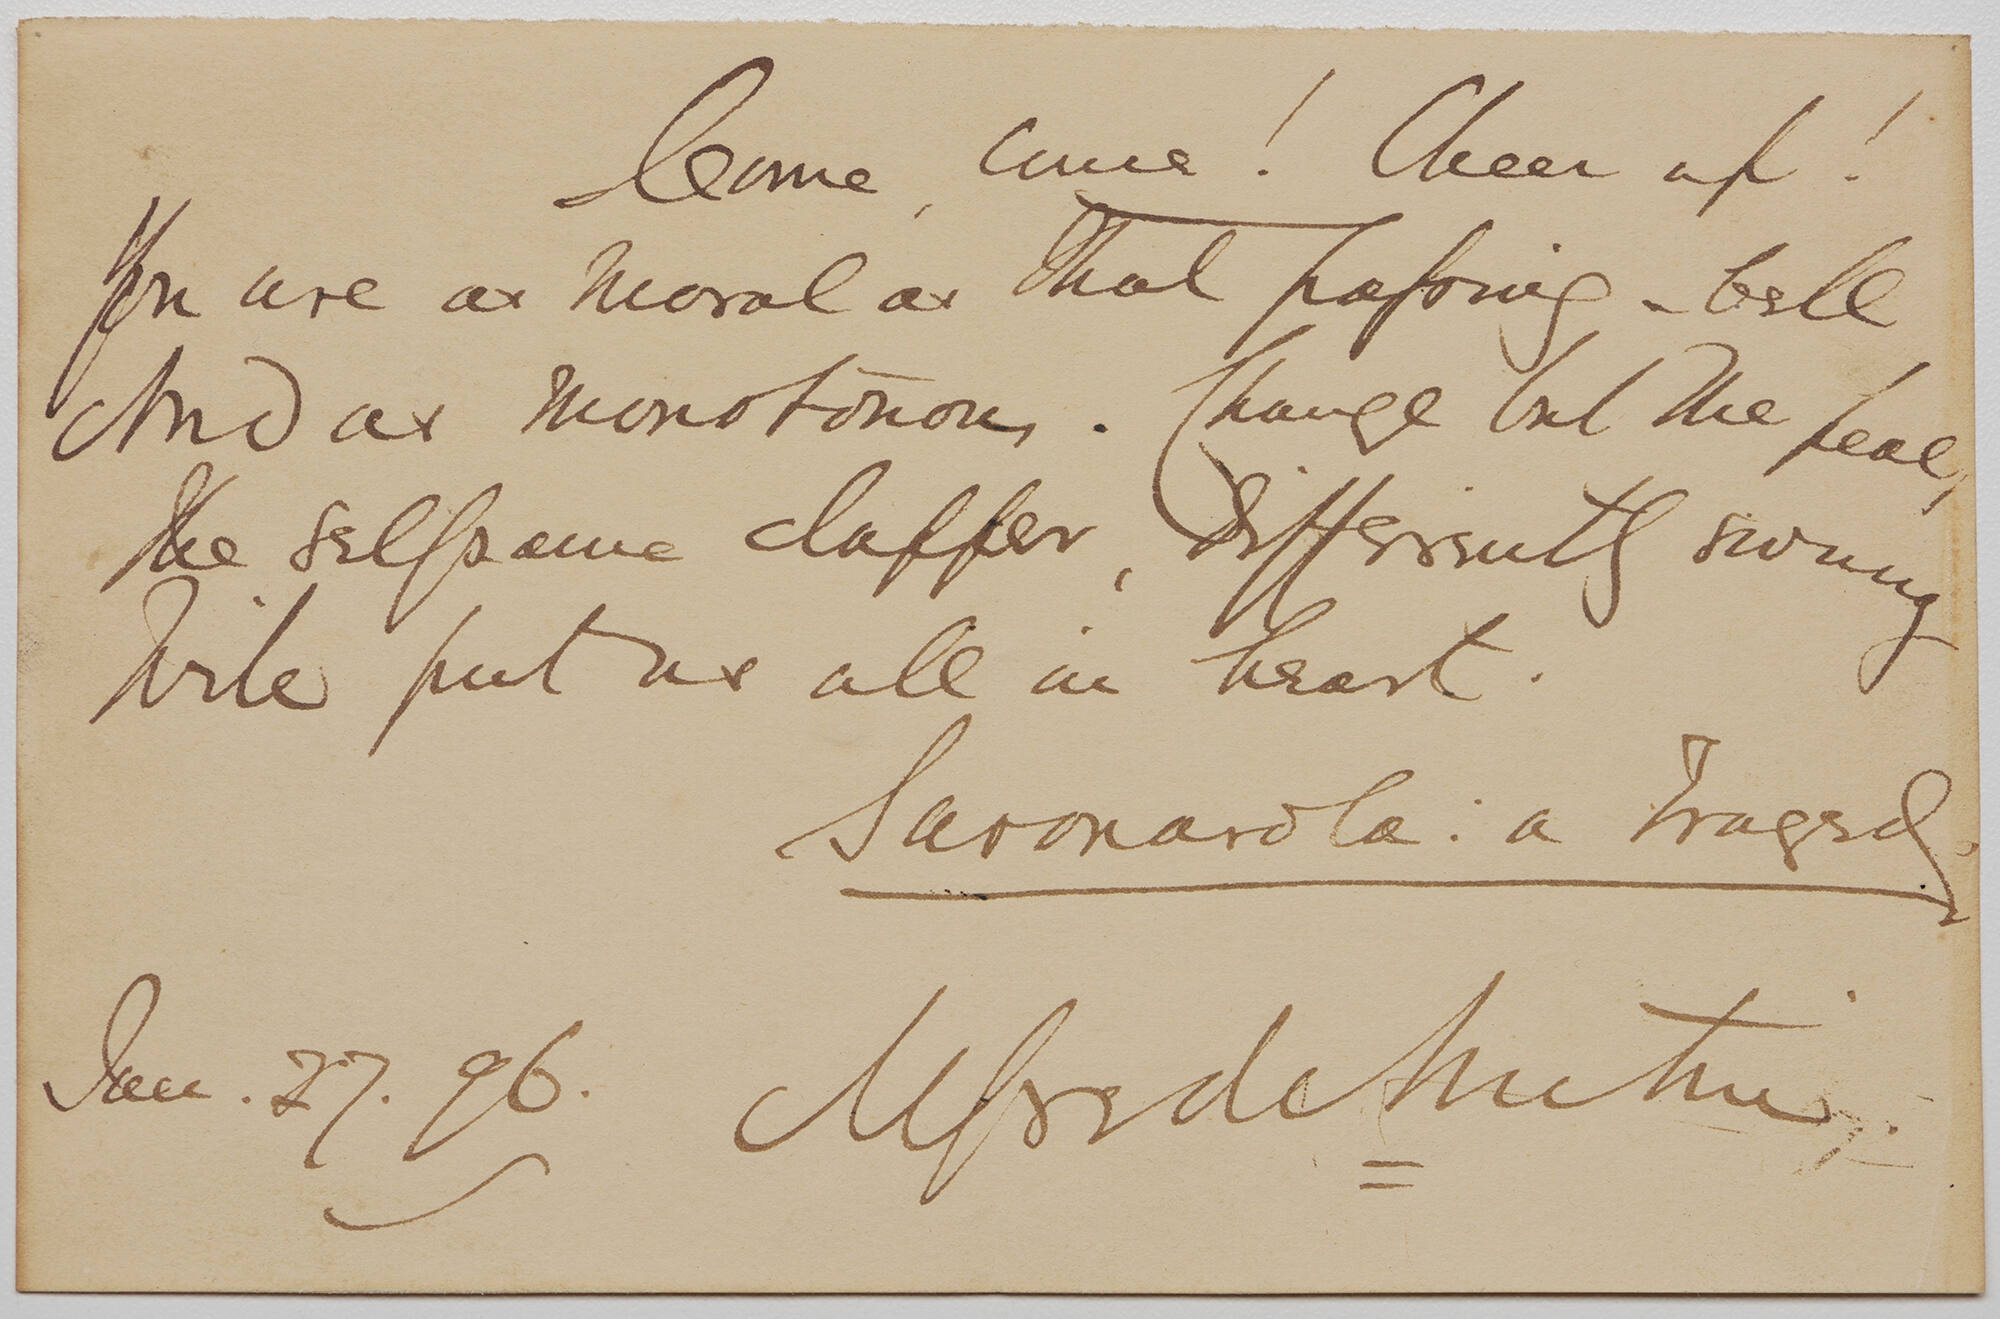 Come, come! Cheer up!
You are as moral as that passing-bell
And as monotonous. Change but the peal,
The selfsame clapper, differently swung
Will put us all in heart.
Savonarola: a Tragedy.
Jan. 27. 96. Alfred Austin.